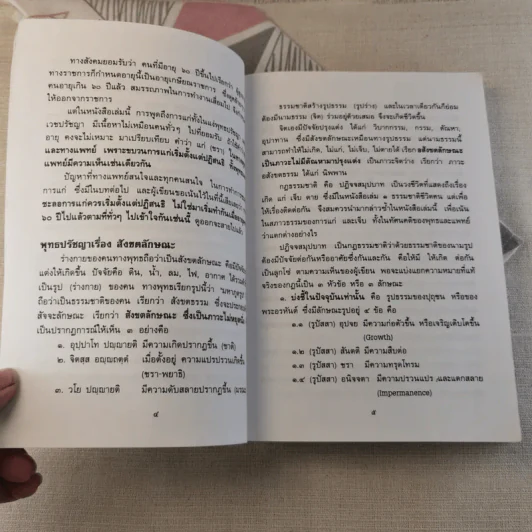 ทางสังคมยอมรับว่า คนที่มีอายุ ๖๐ ปีขึ้นไปเรียกว่า
ทางราชการก็กำหนดอายุนี้เป็นอายุเกษียณราชการ
คนอายุเกิน ๖๐ ปีแล้ว สมรรถภาพในการทำงานเสื่อมไป
ให้ออกจากราชการ
แต่ในหนังสือเล่มนี้ การพูดถึงการแก่ทั้งในแง่พุทธปรัชญา
เวชปรัชญา มีเนื้อหาไม่เหมือนคนทั่วๆ ไปที่ยอมรับ
อายุ คงจะไม่เหมาะ มาเปรียบเทียบ คำว่า แก่ (ชรา)
และทางแพทย์ เพราะขบวนการแก่เริ่มตั้งแต่ปฏิสนธิ
แพทย์มีความเห็นเช่นเดียวกัน
ปัญหาที่ทางแพทย์สนใจและทุกคนสนใจ ในการทำ
การแก่ ซึ่งมีในบทต่อไป และผู้เขียนขอเน้นไว้ในที่นี้
ชะลอการแก่ควรเริ่มตั้งแต่ปฏิสนธิ ไม่ใช่มาเริ่มทำกันเมื่อ
๖๐ ปีไปแล้วตามที่ทั่วๆ ไปเข้าใจกันเช่นนี้ ดูออกจะสายไปแล้ว
พุทธปรัชญาเรื่อง สังขตลักษณะ
ร่างกายของคนทางพุทธถือว่าเป็นสังขตลักษณะ คือมีปัจจัย
แต่งให้เกิดขึ้น ปัจจัยคือ ดิน, น้ำ, ลม, ไฟ, อากาศ ได้รวม
เป็นรูป (ร่างกาย) ของคน ทางพุทธเรียกรูปนี้ว่า
ถือว่าเป็นธรรมชาติของคน เรียกว่า สังขตธรรม ซึ่งจะประกอบ
สัจจะลักษณะ เรียกว่า สังขตลักษณะ ซึ่งเป็นภาวะไม่หยุดนิ่ง
เป็นปรากฏการณ์ให้เห็น ๓ อย่างคือ
๑. อุปฺปาโท ปญฺญายติ มีความเกิดปรากฏขึ้น (ชาติ)
๒. จิตสฺส อญฺญถตฺตํ เมื่อตั้งอยู่ ความแปรปรวนเกิดขึ้น
(ชรา-พยาธิ)
๓. วโย ปญฺญายติ มีความดับสลายปรากฏขึ้น
๔
ธรรมชาติสร้างรูปธรรม (รูปร่าง) และในเวลาเดียวกันก็ย่อม
ต้องมีนามธรรม (จิต) ร่วมอยู่ด้วยเสมอ จึงจะเกิดชีวิตขึ้น
จิตเองมีปัจจัยปรุงแต่ง ได้แก่ วิบากกรรม, กรรม, ตัณหา,
อุปาทาน ซึ่งมีสังขตลักษณะเหมือนกับรูปธรรม แต่นามธรรมนี้
สามารถทำให้ไม่เกิด, ไม่แก่, ไม่เจ็บ, ไม่ตายได้ เรียก อสังขตลักษณะ
เป็นภาวะไม่มีตัณหามาปรุงแต่ง เป็นภาวะจิตว่าง เรียกว่า ภาวะ
อสังขตธรรม ได้แก่ นิพพาน
กฎธรรมชาติ คือ ปฏิจจสมุปบาท เป็นวงชีวิตที่แสดงถึงเรื่อง
เกิด แก่ เจ็บ ตาย ซึ่งมีในหนังสือเล่ม ๑ ธรรมชาติชีวิตคน แต่เพื่อ
ให้เรื่องติดต่อกัน จึงสมควรนำมากล่าวซ้ำในหนังสือเล่มนี้ เพื่อเน้น
ในสภาวธรรมของการแก่ และเจ็บ ทั้งในทัศนคติของพุทธและแพทย์
ว่าแตกต่างอย่างไร
ปฏิจจสมุปบาท เป็นกฎธรรมชาติว่าด้วยธรรมชาติของนามรูป
ต้องมีปัจจัยต่อกันหรืออาศัยซึ่งกันและกัน คือให้มี ให้เกิด ต่อกัน
เป็นลูกโซ่ ตามความเห็นของผู้เขียน พอจะแบ่งแยกความหมายที่แท้
จริงของกฎนี้เป็น ๓ หัวข้อ หรือ ๓ ลักษณะ
๑. บ่งชี้ในปัจจุบันเท่านั้น คือ รูปธรรมของปุถุชน หรือของ
พระอรหันต์ ซึ่งมีลักษณะรูปอยู่ ๔ ข้อ คือ
๑.๑ (รูปัสสา) อุปจย มีความก่อตัวขึ้น หรือเจริญเติบโตขึ้น
(Growth)
๑.๒ (รูปัสสา) สันตติ มีความสืบต่อ
๑.๓ (รูปัสสา) ชรา มีความทรุดโทรม
๑.๔ (รูปัสสา) อนิจจตา มีความปรวนแปร และแตกสลาย
(Impermanence)
๕